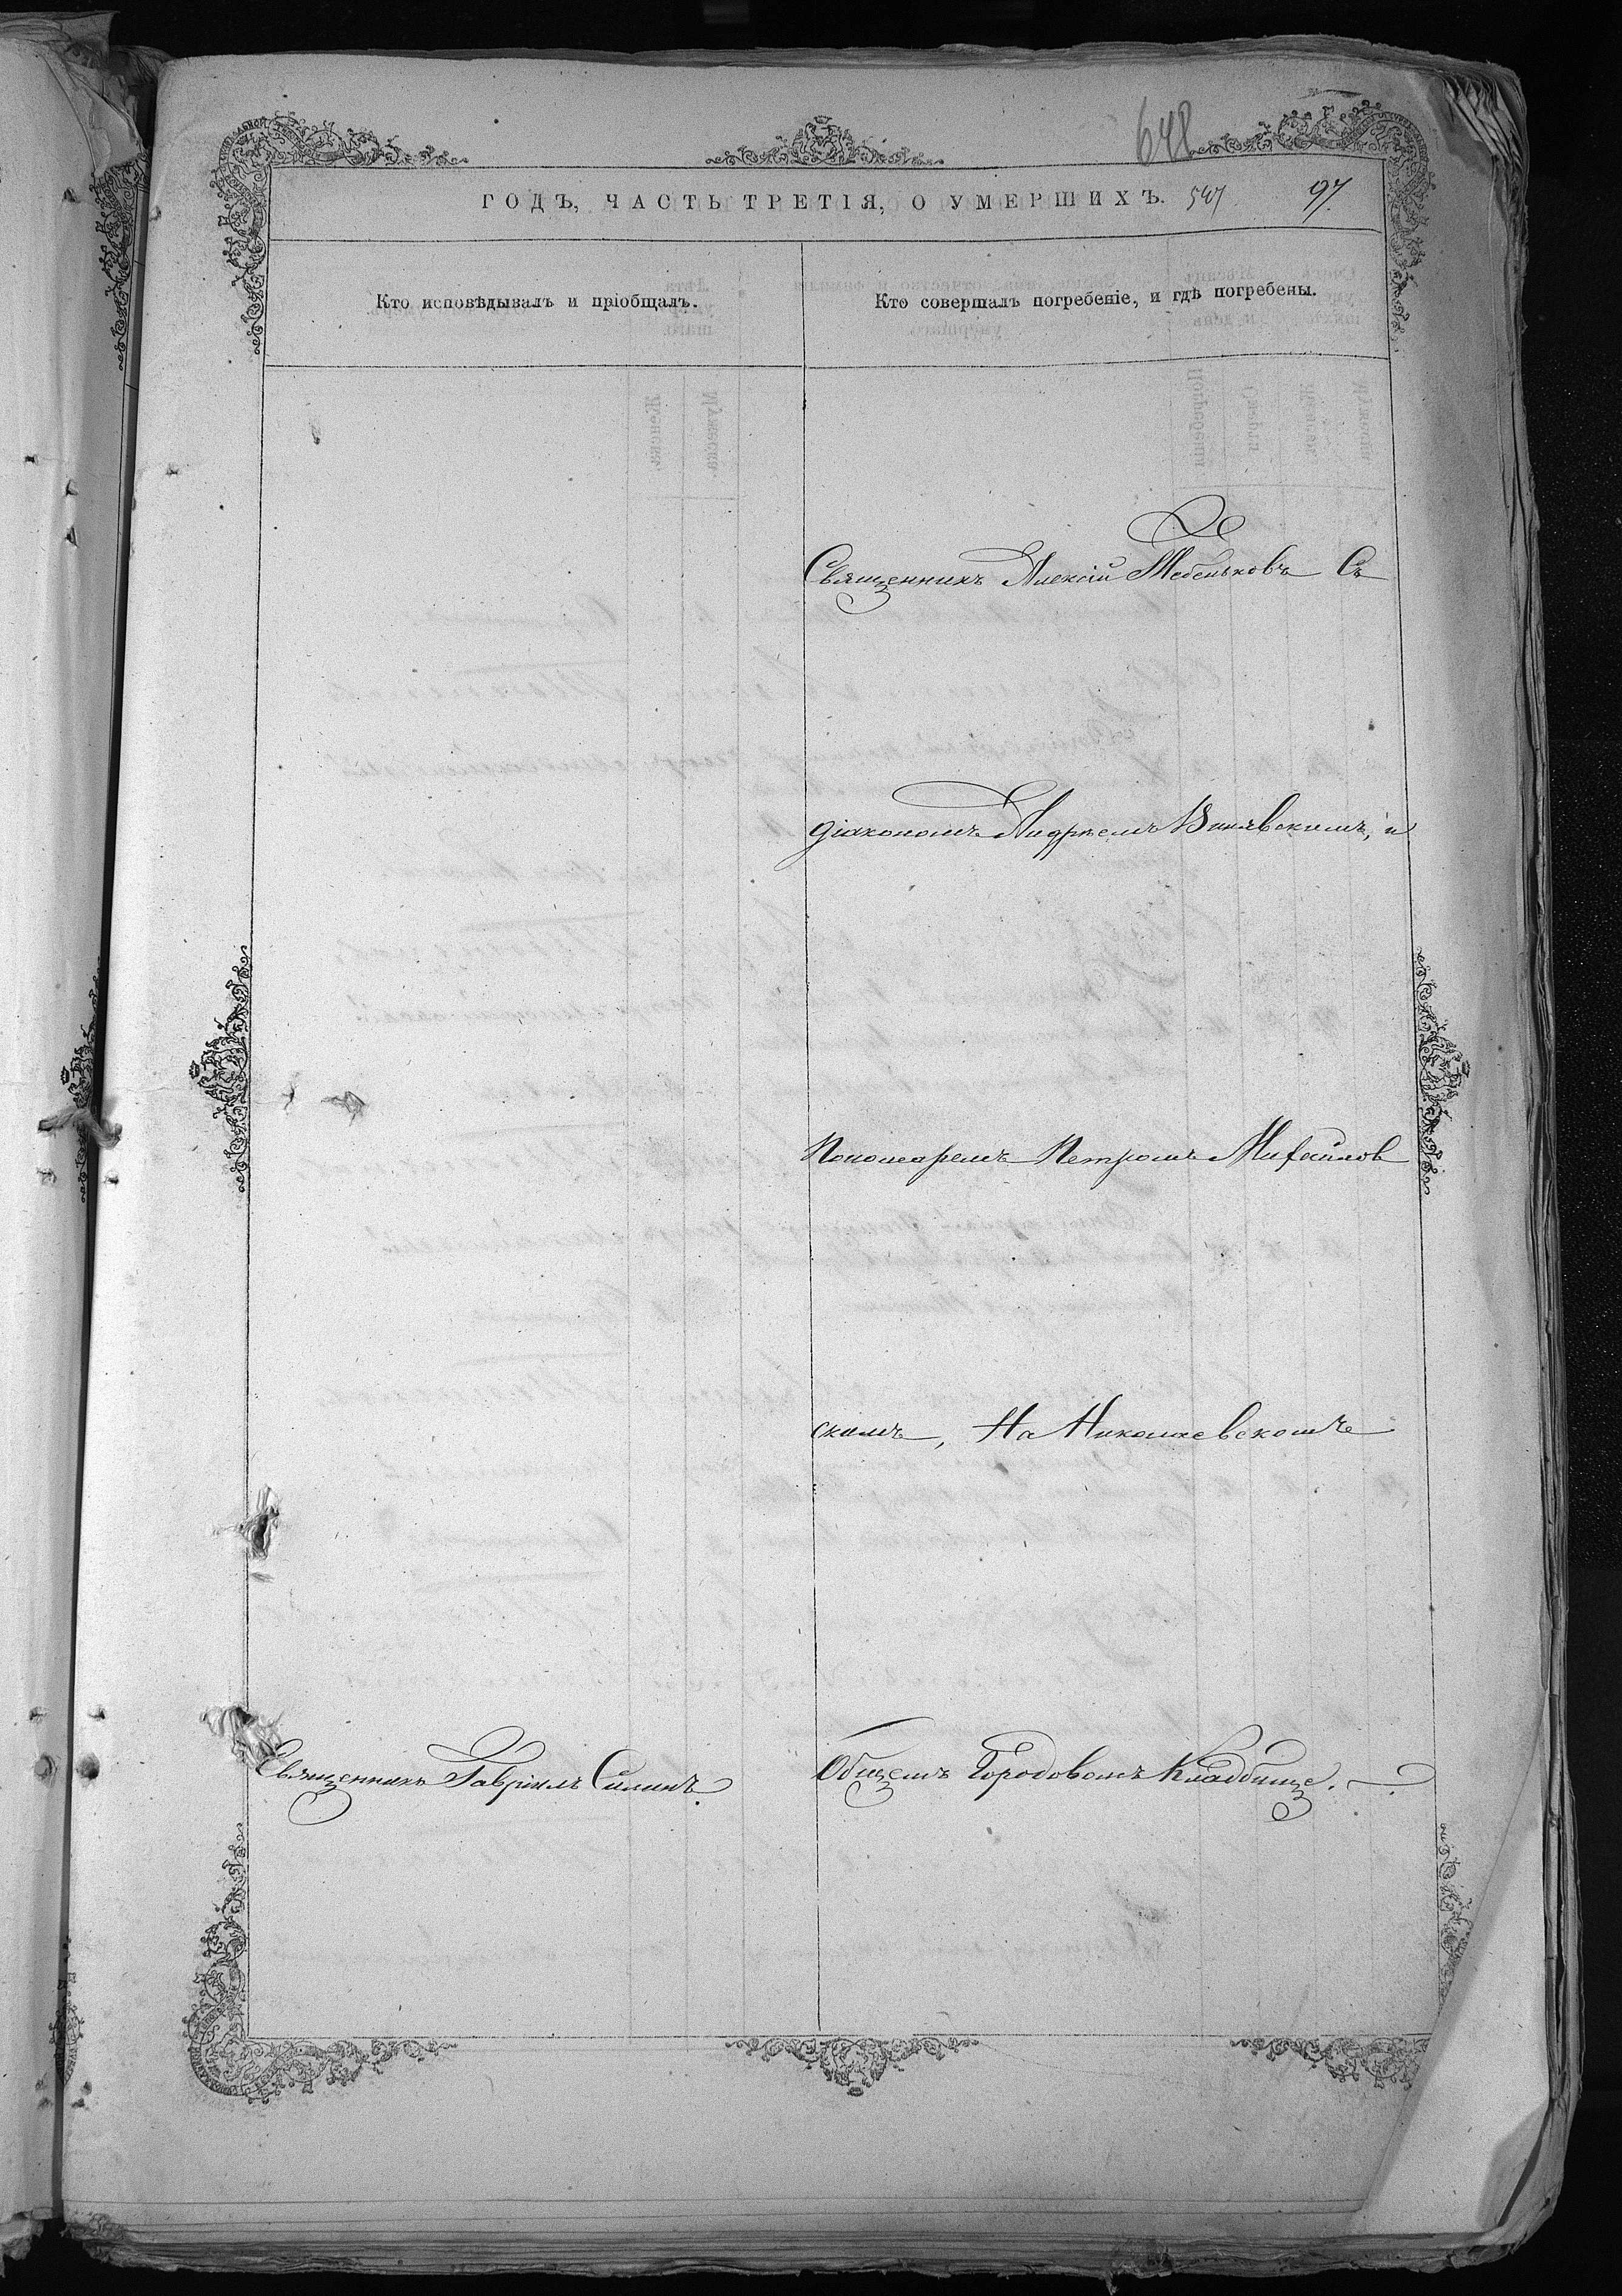 648
ГОДЪ, ЧАСТЬ ТРЕТІЯ, О УМЕРШИХЪ. 547 97.
Кто исповѣдывалъ и пріобщалъ.
Кто совершалъ погребеніе, и гдѣ погребены.
Священникъ Алексій Жебеньковъ Съ
діакономъ Андреемъ Винявскимъ, и
Пономаремъ Петромъ Михайлов
скимъ, На Николаевскомъ
Священникъ Гавріилъ Силинъ.
Общемъ Городовомъ Кладбище.